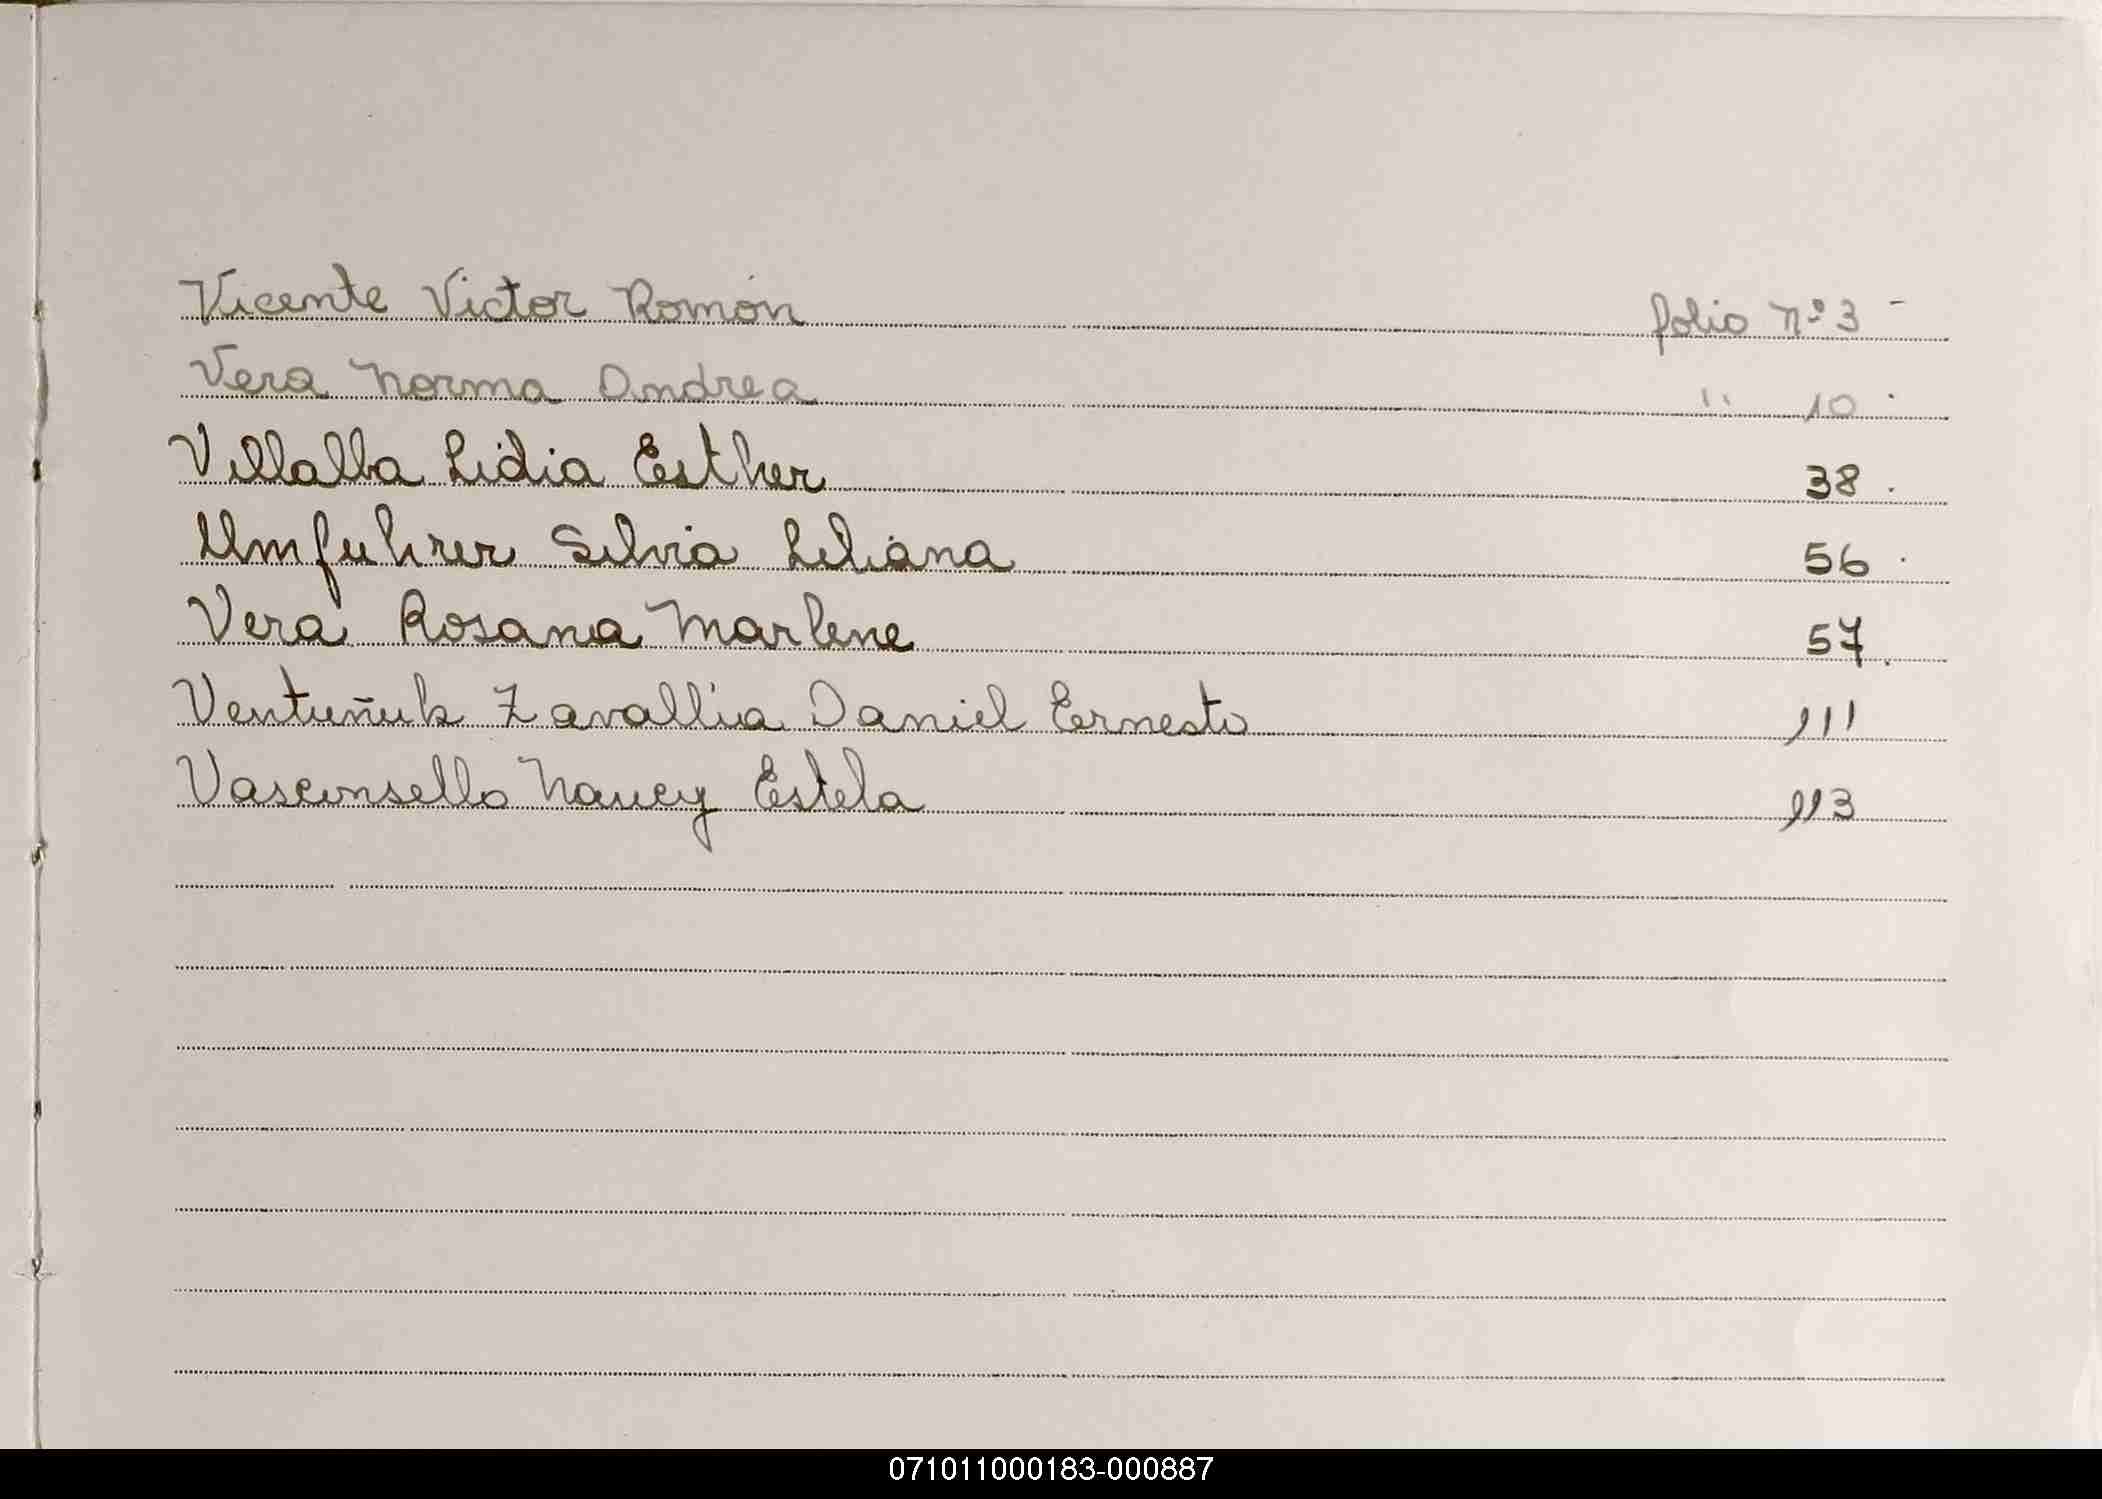 Vicente Victor Román folio nº 3 -
Vera Norma Andrea " 10 .
Villalba Lidia Esther 38 .
Umfuhrer Silvia Liliana 56 .
Vera Rosana Marlene 57 .
Zavallia Daniel Ernesto 111
Vasconsello Nancy Estela 113
071011000183-000887